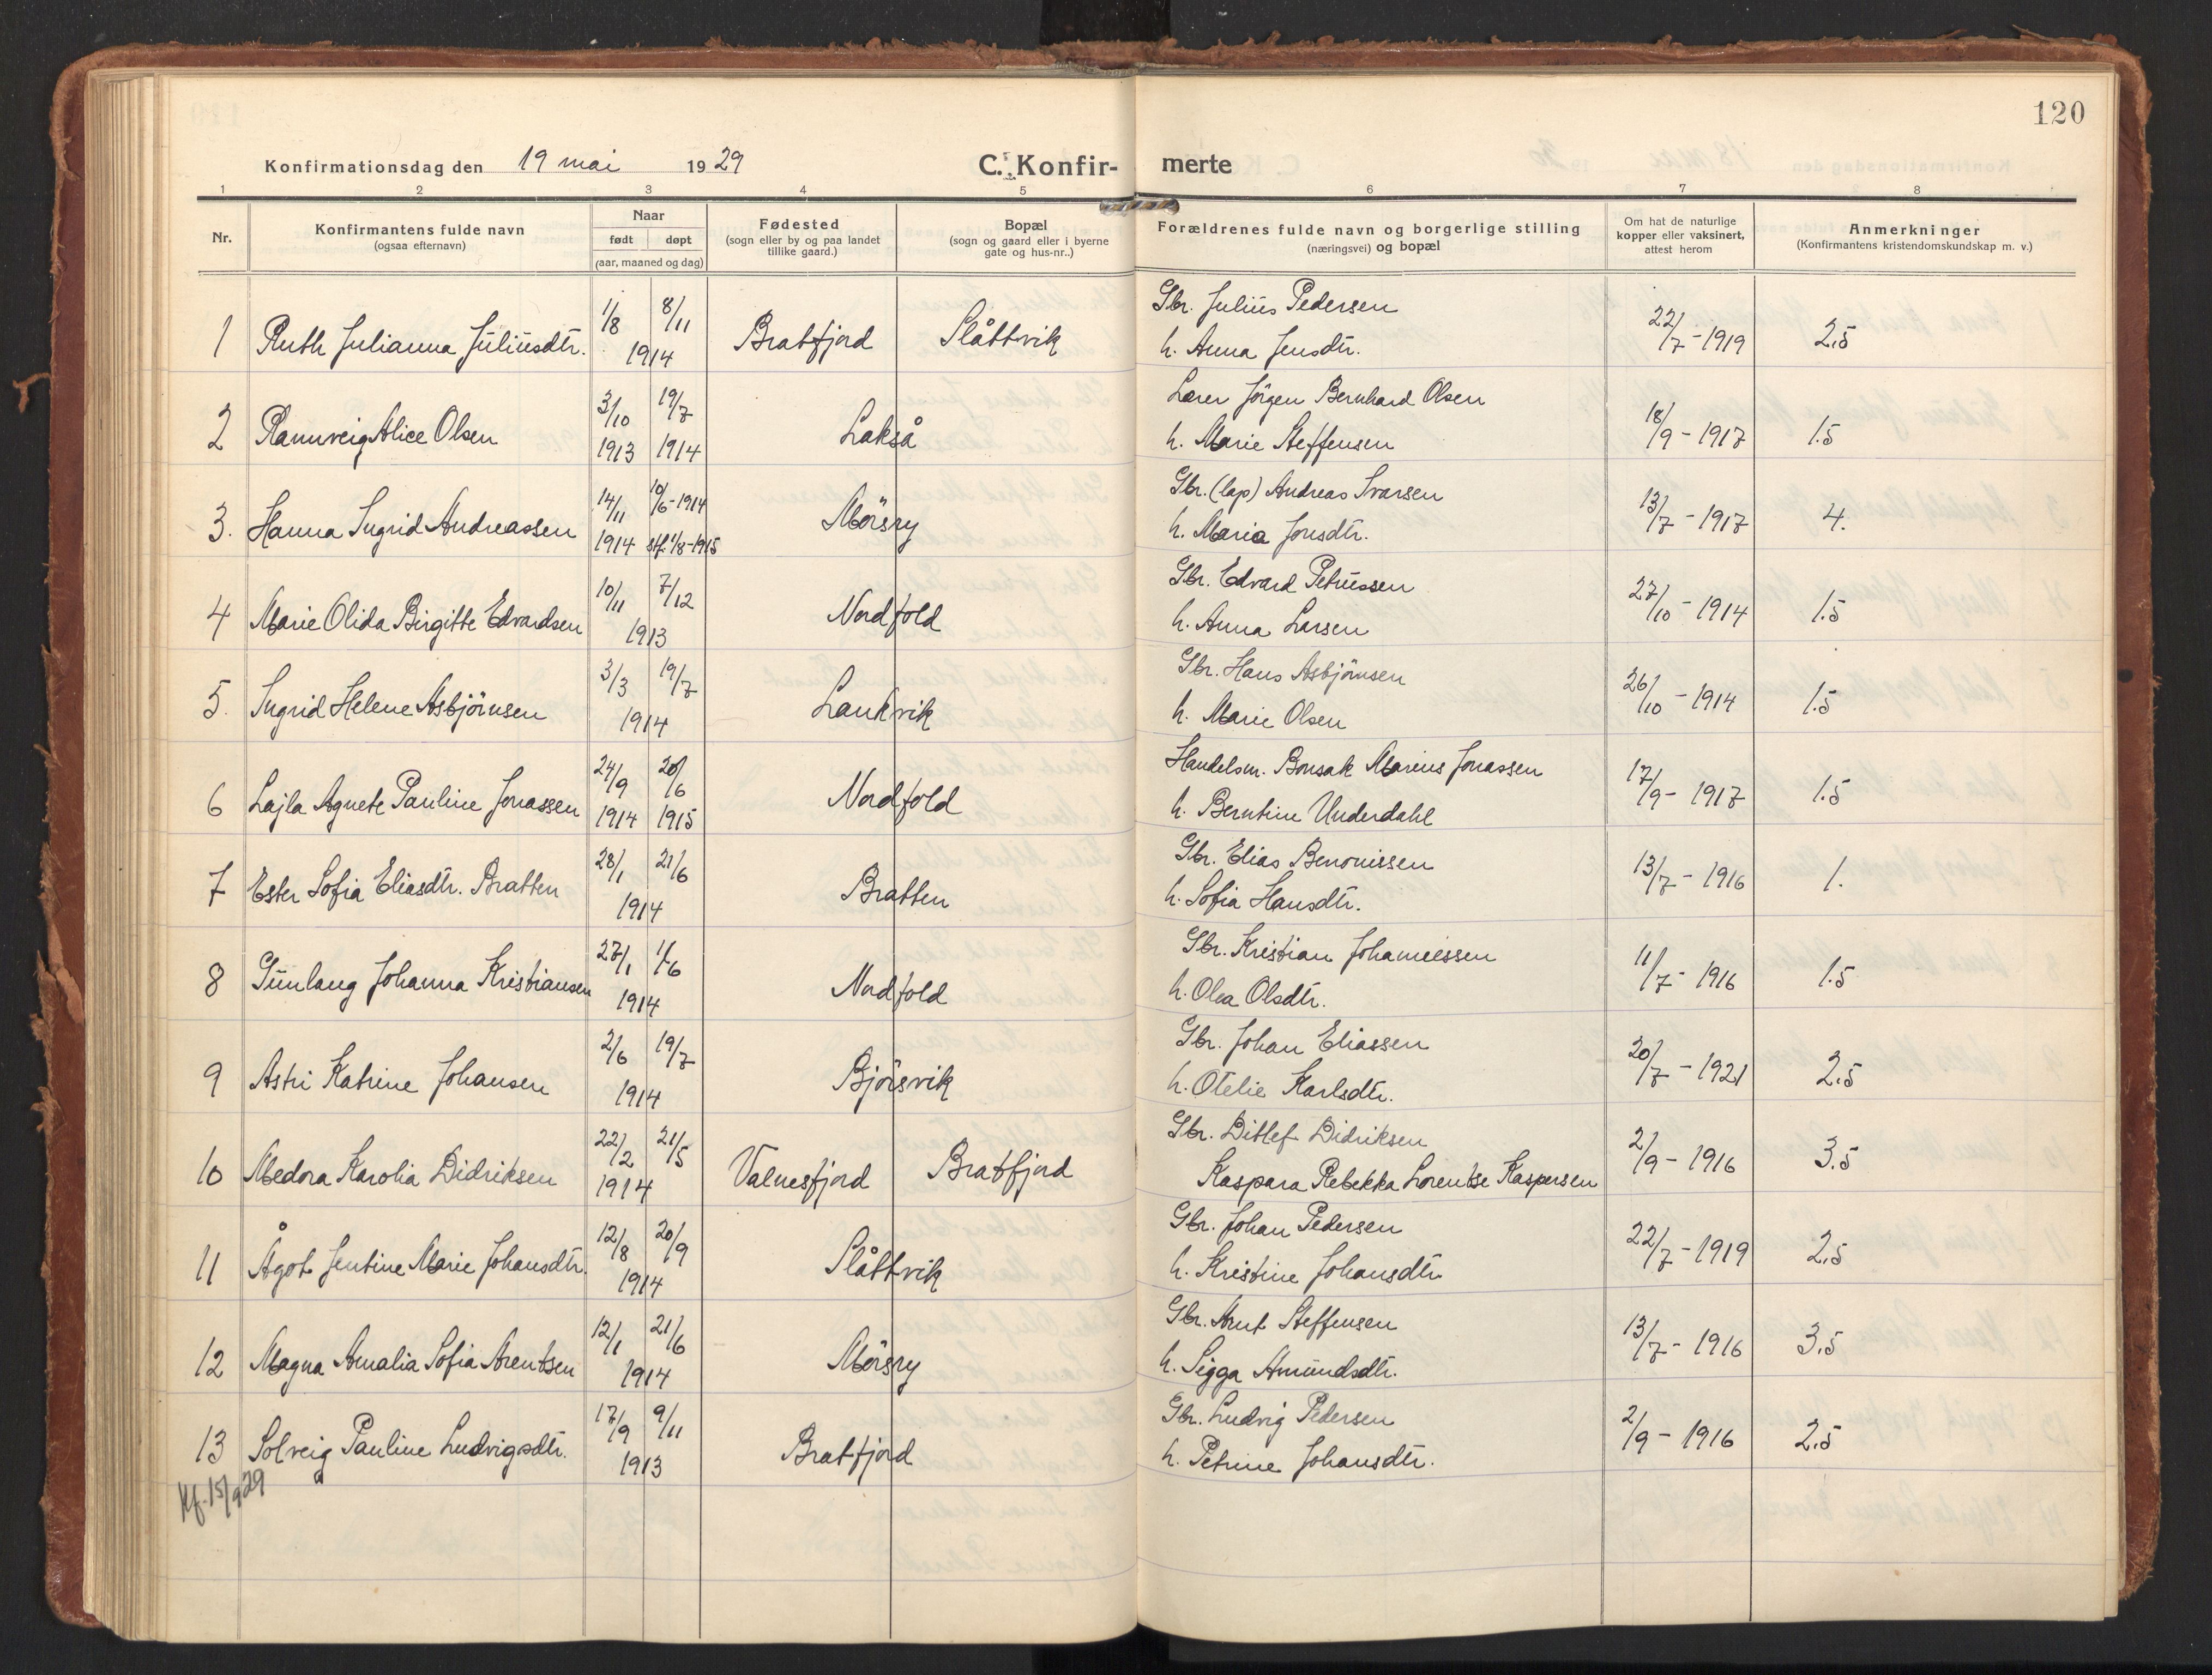 120
Konfirmationsdag den 19 mai 1929 C. Konfir- merte
1 2 3 4 5 6 7 8
Nr. Konfirmantens fulde navn (ogsaa efternavn) Naar født døpt (aar, maaned og dag) Fødested (sogn eller by og paa landet tillike gaard.) Bopæl (sogn og gaard eller i byerne gate og hus-nr..) Forældrenes fulde navn og borgerlige stilling (næringsvei) og bopæl Om hat de naturlige kopper eller vaksinert, attest herom Anmerkninger (Konfirmantens kristendomskundskap m. v.)
1/8 8/11 Gbr. Julius Pedersen 22/7-1919
1 Ruth Julianna Júliúsdtr. 1914 Bratfjord Slåttvik h. Anna Jensdtr. 2,5
3/10 19/7 Lærer Jörgen Bernhard Olsen 18/9-1917
2 Rannveig Alice Olsen 1913 1914 Lakså h. Marie Steffensen 1.5
14/11 10/6-1914 Gbr. (lap) Andreas Ivarsen 13/7-1917
3. Hanna Ingrid Andreassen 1914 stf. 1/8-1915 Mörsry h. Maria Jonsdtr. 4.
10/11 7/12 Gbr. Edvard Petrússen 27/10-1914
4 Marie Olida Birgitte Edvardsen 1913 Nordfold h. Anna Larsen 1.5
3/3 19/7 Gbr. Hans Asbjörnsen 26/10-1914
5. Ingrid Helene Asbjörnsen 1914 Lankvik h. Marie Olsen 1.5
24/9 20/6 Handelsm. Bonsak Marius Jonassen 17/9-1917
6 Lajla Agnete Pauline Jonassen 1914 1915 Nordfold h. Berntine Underdahl 1.5
28/1 21/6 Gbr. Elias Benonissen 13/7-1916
7 Ester Sofia Eliasdtr. Bratten 1914 Bratten h. Sofia Hansdtr. 1.
27/1 1/6 Gbr. Kristian Johannessen 11/7-1916
8 Gúnlaug Johanna Kristiansen 1914 Nordfold h. Olea Olsdtr. 1.5
2/6 19/7 Gbr. Johan Eliassen 20/7-1921
9 Astri Katrine Johansen 1914 Bjørsvik h. Otelie Karlsdtr. 2.5
22/2 21/5 Gbr. Ditlef Didriksen 2/9-1916
10 Medora Karolia Didriksen 1914 Valnesfjord Bratfjord Kaspara Rebekka Lorentse Kaspersen 3.5
12/8 20/9 Gbr. Johan Pedersen 22/7-1919
11 Ågot Jentine Marie Johansdtr. 1914 Slåttvik h. Kristine Johansdtr 2,5
12/1 21/6 Gbr. Arnt Steffensen 13/7-1916
12 Magna Amalia Sofia Arentsen 1914 Mörsry h. Sigga Amúndsdtr. 3.5
17/9 9/11 Gbr. Ludvig Pedersen 2/9-1916
13 Solveig Pauline Ludvigsdtr. 1913 Bratfjord h. Petrine Johansdtr. 2.5
Kf. 15/9 29